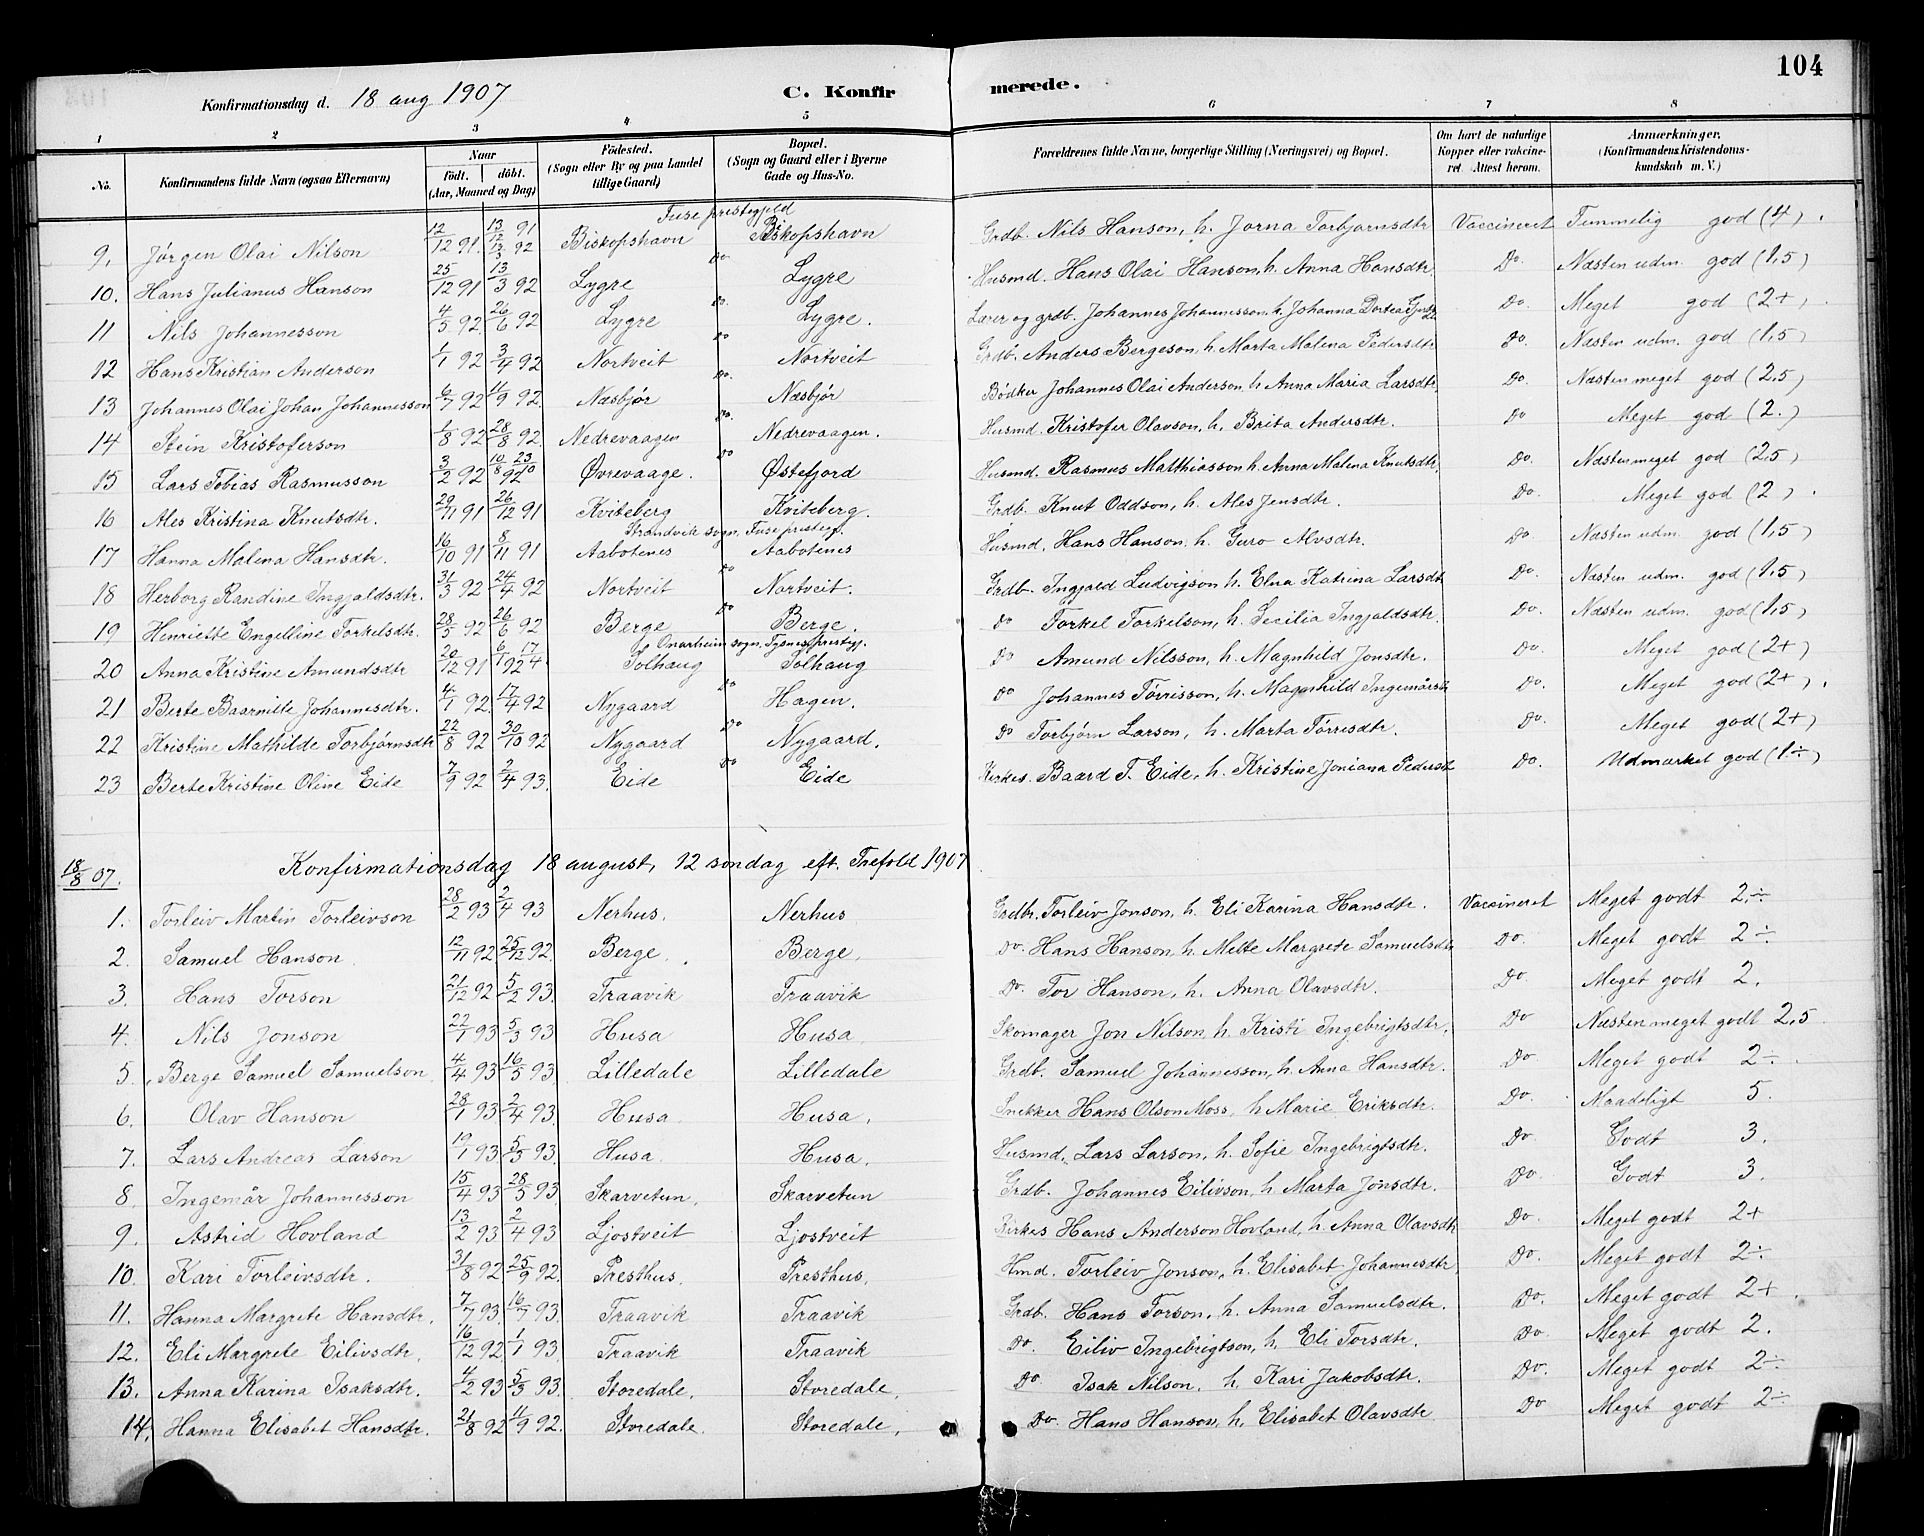 104
Konfirmationsdag d. 18 aug 1907 C. Konfirmerede.
1 2 3 4 5 6 7 8
No. Konfirmandens fulde Navn (ogsaa Efternavn) Naar født. døbt. (Aar, Maaned og Dag) Fødested. (Sogn eller By og paa Landet tillige Gaard) Bopæl. (Sogn og Gaard eller i Byerne Gade og Hus-No. Forældrenes fulde Navne, borgerlige Stilling (Næringsvei) og Bopæl. Om havt de naturlige Kopper eller vaccineret. Attest herom. Anmærkninger. (Konfirmandens Kristendomskundskab m. V.)
Fuse prestegjeld
9. Jørgen Olai Nilson 12/12 91. 13/12 91 13/3 92 Biskopshavn Biskopshavn Grdb. Nils Hanson, h. Jorna Torbjørnsdtr Vaccineret Temmelig god (4).
10. Hans Julianus Hanson 25/12 91 13/3 92 Lygre Do Lygre Husmd. Hans Olai Hanson, h. Anna Hansdtr. Do. Næsten udm. god (1,5)
11 Nils Johannesson 4/5 92 26/6 92 Lygre Do. Lygre. Lærer og grdb. Johannes Johannesson, h. Johanna Dortea Do. Meget god (2+).
12 Hans Kristian Anderson 1/1 92 3/4 92 Nortveit Do Nortveit Grdb. Anders Bergeson, h. Marta Malena Pedersdtr Do. Næsten udm. god (1,5)
13 Johannes Olai Johan Johannesson 6/7 92 11/9 92. Næsbjør Do. Næsbjør Bødker Johannes Olai Anderson, h. Anna Maria Larsdtr. Do. Næsten meget god (2,5)
14 Stein Kristoferson 1/8 92 28/8 92. Nedrevaagen Do. Nedrevaagen. Husmd. Kristofer Olavson, h. Brita Andersdtr. Do Meget god (2.)
15 Lars Tobias Rasmusson 3/2 92 10/8 23/10 92 Øvrevaage. Do Østefjord Husmd. Rasmus Matthiasson h. Anna Malena Knutsdtr. Do. Næsten meget god (2,5)
16 Ales Kristina Knutsdtr. 29/11 91 26/12 91 Kviteberg Kviteberg. Grdb. Knut Oddson, h. Ales Jensdtr. Do. Meget god (2).
Strandvik sogn, Fuse prestegj.
17 Hanna Malena Hansdtr. 16/10 91 8/11 91 Aabotenes Aabotenes Husmd. Hans Hanson, h. Guro Alvsdtr. Do Næsten udm. god (1,5)
18 Herborg Randine Ingjaldsdtr. 31/3 92 24/4 92 Nortveit Do Nortveit. Grdb. Ingjald Ludvigson, h. Elna Katrina Larsdtr Do. Næsten udm. god (1,5)
19 Henriette Engelline Torkelsdtr. 28/5 92 26/6 92 Berge Do Berge. Do Torkel Torkelson, h. Secilia Ingjaldsdtr. Do. Næsten udm. god (1,5)
Onarheim sogn, Tysnes prestegj.
20 Anna Kristine Amundsdtr 20/12 91 6/1 17/4 92 Solhaug Solhaug Do Amund Nilsson, h. Magnhild Jonsdtr. Do. Meget god (2+)
21 Berte Baarnille Johannesdtr. 4/1 92 17/4 92 Nygaard Do Hagen. Do Johannes Tørrisson, h. Magnhild Ingemårsdtr Do. Meget god (2+).
22 Kristine Mathilde Torbjørnsdtr 22/8 92 30/10 92 Nygaard Do Nygaard. Do Torbjørn Larson, h. Marta Tørresdtr. Do. Meget god (2+)
23 Berte Kristine Oline Eide 7/9 92 2/4 93. Eide Do Eide Kirkes. Baard T. Eide, h. Kristine Joniana Pedersdtr Do. Udmærket god (1÷)
18/8 07. Konfirmationsdag 18 august, 12 søndag eft. Trefold 1907
1. Torleiv Martin Torleivson 28/2 93 2/4 93 Nerhus. Nerhus Grdbr. Torleiv Jonson, h. Eli Karina Hansdtr. Vaccineret Meget godt 2÷
2. Samuel Hanson 12/11 92 25/12 92. Berge. Berge. Do. Hans Hanson, h. Mette Margrete Samuelsdtr Do. Meget godt 2÷
3. Hans Torson 21/12 92 5/2 93. Traavik Traavik Do. Tor Hanson, h. Anna Olavsdtr. Do. Meget godt 2.
4. Nils Jonson 22/1 93 5/3 93. Husa Husa. Skomager Jon Nilson, h. Kristi Ingebrigtsdtr. Do Næsten meget godt 2,5
5. Berge Samuel Samuelson 4/4 93 16/5 93. Lilledale Lilledale Grdb. Samuel Johannesson, h. Anna Hansdtr. Do. Meget godt 2÷.
6. Olav Hanson 28/1 93. 2/4 93. Husa Husa. Snekker Hans Olson Moss, h Marie Eriksdtr. Do. Maadeligt 5.
7. Lars Andreas Larson 19/1 93 5/3 93. Husa. Husa. Husmd. Lars Larson, h. Sofie Ingebrigtsdtr. Do. Godt 3.
8. Ingemår Johannesson 15/4 93 28/5 93. Skarvetun. Skarvetun Grdb. Johannes Eilivson, h Marta Jonsdtr. Do. Godt 3.
9. Astrid Hovland 13/2 93 2/4 93 Ljostveit Ljostveit Kirkes Hans Anderson Hovland, h. Anna Olavsdtr Do. Meget godt 2+
10. Kari Torleivsdtr. 31/8 92 25/9 92. Presthus. Presthus. Hmd. Torleiv Jonson, h. Elisabet Johannesdtr. Do. Meget godt 2÷
11. Hanna Margrete Hansdtr. 7/7 93. 16/7 93. Traavik Traavik Grdb. Hans Torson, h. Anna Samuelsdtr. Do. Meget godt 2+.
12. Eli Margrete Eilivsdtr. 16/12 92 1/1 93. Traavik Traavik Do. Eiliv Ingebrigtson, h. Eli Torsdtr. Do. Meget godt 2.
13. Anna Karina Isaksdtr. 4/2 93 5/3 93. Storedale. Storedale. Do Isak Nilson. h. Kari Jakobsdtr. Do. Meget godt 2÷
14. Hanna Elisabet Hansdtr. 21/8 92 11/9 92. Storedale. Storedale. Do. Hans Hanson, h. Elisabet Olavsdtr Do Meget godt 2÷